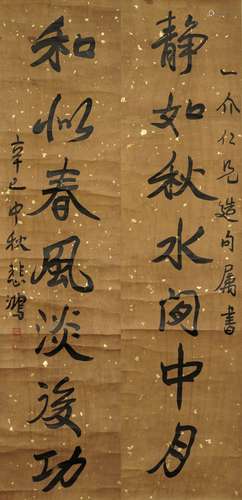 一介仁兄造句属書
静如秋水闵中月
和似春風淡後功
辛巳中秋悲鴻